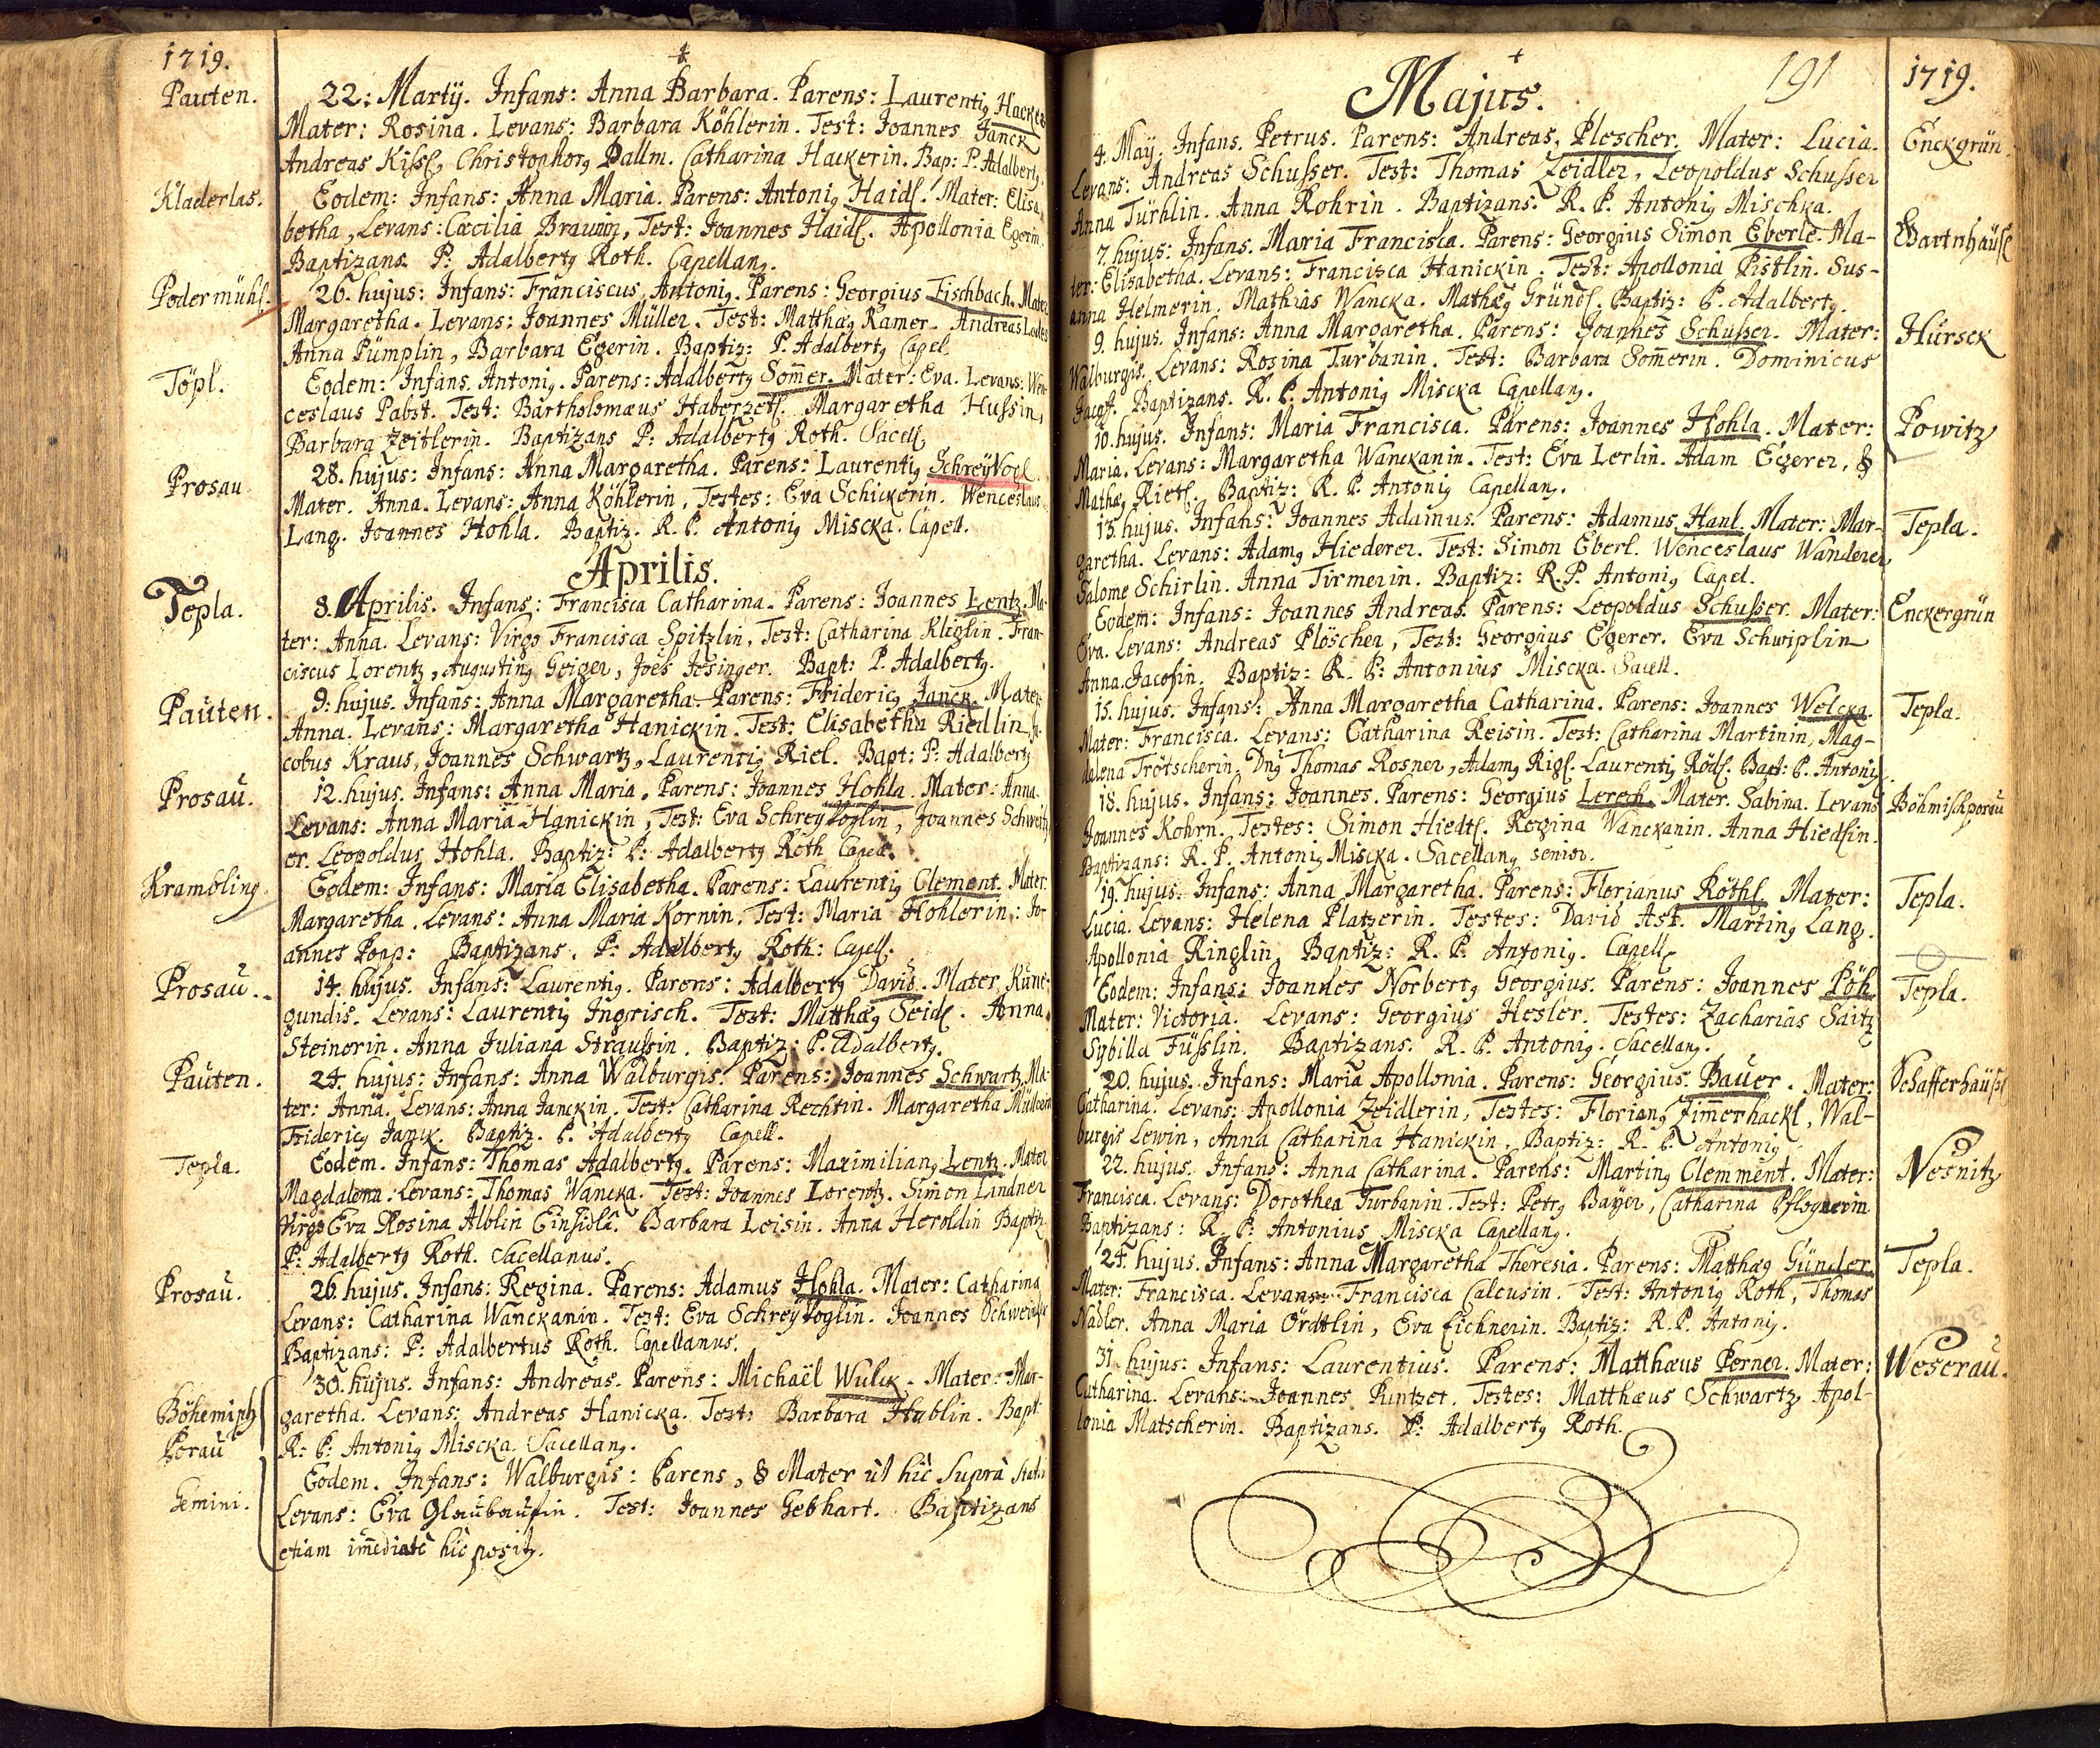 1719.
Pauten.
22: Martij. Infans: Anna Barbara. Parens: Laurentig Hacker
Mater: Rosina. Levans: Barbara Köhlerin. Test: Joannes Janck
Andreas Kissl, Christophorg Pallm. Catharina Hackerin. Bap: P. Adalbertg.
Kladerlas.
Eodem: Infans: Anna Maria. Parens: Antonig Haidl. Mater: Elisa-
betha, Levans: Cæcilia Braunin, Test: Joannes Haidl. Apollonia Egerin.
Baptizans P: Adalbertg Roth. Capellang.
Podermühl.
26. hujus: Infans: Franciscus Antonig. Parens: Georgius Fischbach. Mater
Margaretha. Levans: Joannes Müller. Test: Matthæg Ramer. Andreas Loder
Anna Pümplin, Barbara Egerin. Baptiz: P. Adalbertg Capel.
Töpl.
Eodem: Infans. Antonig. Parens: Adalbertg Som̅er. Mater: Eva. Levans: Wen-
ceslaus Pabst. Test: Bartholomæus Haberzetl. Margaretha Hussin,
Barbara Zeitlerin. Baptizans P: Adalbertg Roth. Sacell.
Prosau
28. hujus: Infans: Anna Margaretha. Parens: Laurentig SchreyVogl.
Mater. Anna. Levans: Anna Köhlerin, Testes: Eva Schickerin. Wenceslaus
Lang. Joannes Hohla. Baptiz. R. P. Antonig Miscka. Capell.
Aprilis.
Tepla.
8. Aprilis. Infans: Francisca Catharina. Parens: Joannes Lentz. Ma-
ter: Anna. Levans: Virgo Francisca Spitzlin, Test: Catharina Kliglin. Fran-
ciscus Lorentz, Augusting Geiger, Joes Jesinger. Bapt: P. Adalbertg.
Pauten.
9. hujus. Infans: Anna Margaretha. Parens: Fridericg Janck. Mater
Anna. Levans: Margaretha Hanickin. Test: Elisabetha Riedlin, Ja-
cobus Kraus, Joannes Schwartz, Laurentig Riel. Bapt: P: Adalbertg
Prosau.
12. hujus. Infans: Anna Maria. Parens: Joannes Hohla. Mater: Anna.
Levans: Anna Maria Hanickin, Test: Eva SchreyVoglin, Joannes Schweitz-
er. Leopoldus Hohla. Baptiz: P: Adalbertg Roth Capell.
Krambling.
Eodem: Infans: Maria Elisabetha. Parens: Laurentig Clement. Mater:
Margaretha. Levans: Anna Maria Kornin. Test: Maria Hohlerin: Jo-
annes Popp: Baptizans. P: Adalbertg Roth: Capell.
Prosau.
14. hujus. Infans: Laurentig. Parens: Adalbertg David. Mater. Kune-
gundis. Levans: Laurentig Ingrisch. Test: Matthæg Seidl. Anna.
Steinerin. Anna Juliana Straussin. Baptiz: P. Adalbertg.
Pauten.
24. hujus: Infans: Anna Walburgis. Parens: Joannes Schwartz. Ma-
ter: Anna. Levans: Anna Janckin. Test: Catharina Rechtin. Margaretha Müllnerin
Fridericg Janck. Baptiz. P. Adalbertg Capell.
Tepla.
Eodem. Infans: Thomas Adalbertg. Parens: Maximiliang Lentz. Mater
Magdalena: Levans: Thomas Wancka. Test: Joannes Lorentz. Simon Lindner
Virgo Eva Rosina Alblin Einsidla. Barbara Leisin. Anna Heroldin Baptiz.
P: Adalbertg Roth. Sacellanus.
Prosau.
26. hujus. Infans: Regina. Parens: Adamus Hohla. Mater: Catharina
Levans: Catharina Wanckanin. Test: Eva SchreyVoglin. Joannes Schweitzer
Baptizans: P: Adalbertus Roth. Capellanus.
Böhemisch
Porau
30. hujus. Infans: Andreas. Parens: Michaël Wulck. Mater: Mar-
garetha. Levans: Andreas Hanicka. Test: Barbara Hablin. Bapt:
R: P: Antonig Miscka. Sacellang.
Gemini.
Eodem. Infans: Walburgis: Parens, & Mater ut hic Supra stat
Levans: Eva Glaubaufin. Test: Joannes Gebhart. Baptizans
etiam im̅ediate hic positg.
191
1719.
Majus.
4. May. Infans. Petrus. Parens: Andreas, Plescher. Mater: Lucia.
Levans: Andreas Schusser. Test: Thomas Zeidler, Leopoldus Schusser
Anna Türklin. Anna Rohrin. Baptizans. R. P. Antonig Mischka.
Enckgrün.
7. hujus: Infans. Maria Francisca. Parens: Georgius Simon Eberle. Ma-
ter: Elisabetha. Levans: Francisca Hanickin. Test: Apollonia Pistlin. Sus-
anna Helmerin. Mathias Wancka. Mathæg Gründl. Baptiz: P. Adalbertg.
9. hujus. Infans: Anna Margaretha. Parens: Joannes Schusser. Mater:
Walburgis. Levans: Rosina Turbanin. Test: Barbara Som̅erin. Dominicus
Jacoff. Baptizans. R. P. Antonig Miscka Capellang.
Hursck
10. hujus. Infans: Maria Francisca. Parens: Joannes Hohla. Mater:
Maria. Levans: Margaretha Wanckanin. Test: Eva Lerlin. Adam Egerer, &
Mathæg Rietl. Baptiz: R. P. Antonig Capellang.
Powitz
13. hujus. Infans: Joannes Adamus. Parens: Adamus Hanl. Mater: Mar-
garetha. Levans: Adamg Hiederer. Test: Simon Eberl. Wenceslaus Wanderer
Salome Schirlin. Anna Tirmerin. Baptiz: R. P. Antonig Capel.
Tepla.
Eodem: Infans: Joannes Andreas. Parens: Leopoldus Schusser. Mater:
Eva. Levans: Andreas Plöscher, Test: Georgius Egerer. Eva Schwiplin
Anna Jacofin. Baptiz: R. P: Antonius Miscka. Sacell.
Enckergrün
15. hujus. Infans: Anna Margaretha Catharina. Parens: Joannes Welcka.
Mater: Francisca. Levans: Catharina Reisin. Test: Catharina Martinin, Mag-
dalena Trötscherin, Dng Thomas Rosner, Adamg Rigl. Laurentig Rödl. Bapt: P. Antonig
Tepla.
18. hujus. Infans: Joannes. Parens: Georgius Lerech. Mater. Sabina. Levans
Joannes Kohrn. Testes: Simon Hiedl. Regina Wanckanin. Anna Hiedlin.
Baptizans: R. P. Antonig Miscka. Sacellang senior.
Böhmischporau
19. hujus. Infans: Anna Margaretha. Parens: Florianus Röthl. Mater:
Lucia. Levans: Helena Platzerin. Testes: David Ast. Marting Lang.
Apollonia Ringlin. Baptiz: R. P. Antonig. Capell.
Tepla.
Eodem: Infans: Joannes Norbertg Georgius. Parens: Joannes Pöh.
Mater: Victoria. Levans: Georgius Hesler. Testes: Zacharias Saitz
Sybilla Füsslin. Baptizans. R. P. Antonig. Sacellang.
Tepla.
20. hujus. Infans: Maria Apollonia. Parens: Georgius Bauer. Mater:
Catharina. Levans: Apollonia Zeidlerin, Testes: Floriang Zim̅erhackl, Wal-
burgis Lewin, Anna Catharina Hanickin. Baptiz: R. P. Antonig
Schafferhäusl
22. hujus. Infans: Anna Catharina. Parens: Marting Clemment. Mater:
Francisca. Levans: Dorothea Turbanin. Test: Petrg Bayer, Catharina Pflognerin
Baptizans: R. P: Antonius Miscka Capellang.
Nesnitz
24. hujus. Infans: Anna Margaretha Theresia. Parens: Matthæg Günder.
Mater: Francisca. Levans: Francisca Calcusin. Test: Antonig Roth, Thomas
Nadler. Anna Maria Ördtlin, Eva Eichnerin. Baptiz: R. P. Antonig.
Tepla.
31. hujus: Infans: Laurentius. Parens: Matthæus Perner. Mater:
Catharina. Levans: Joannes Puntzet. Testes: Matthæus Schwartz Apol-
lonia Matscherin. Baptizans. P: Adalbertg Roth.
Weserau.